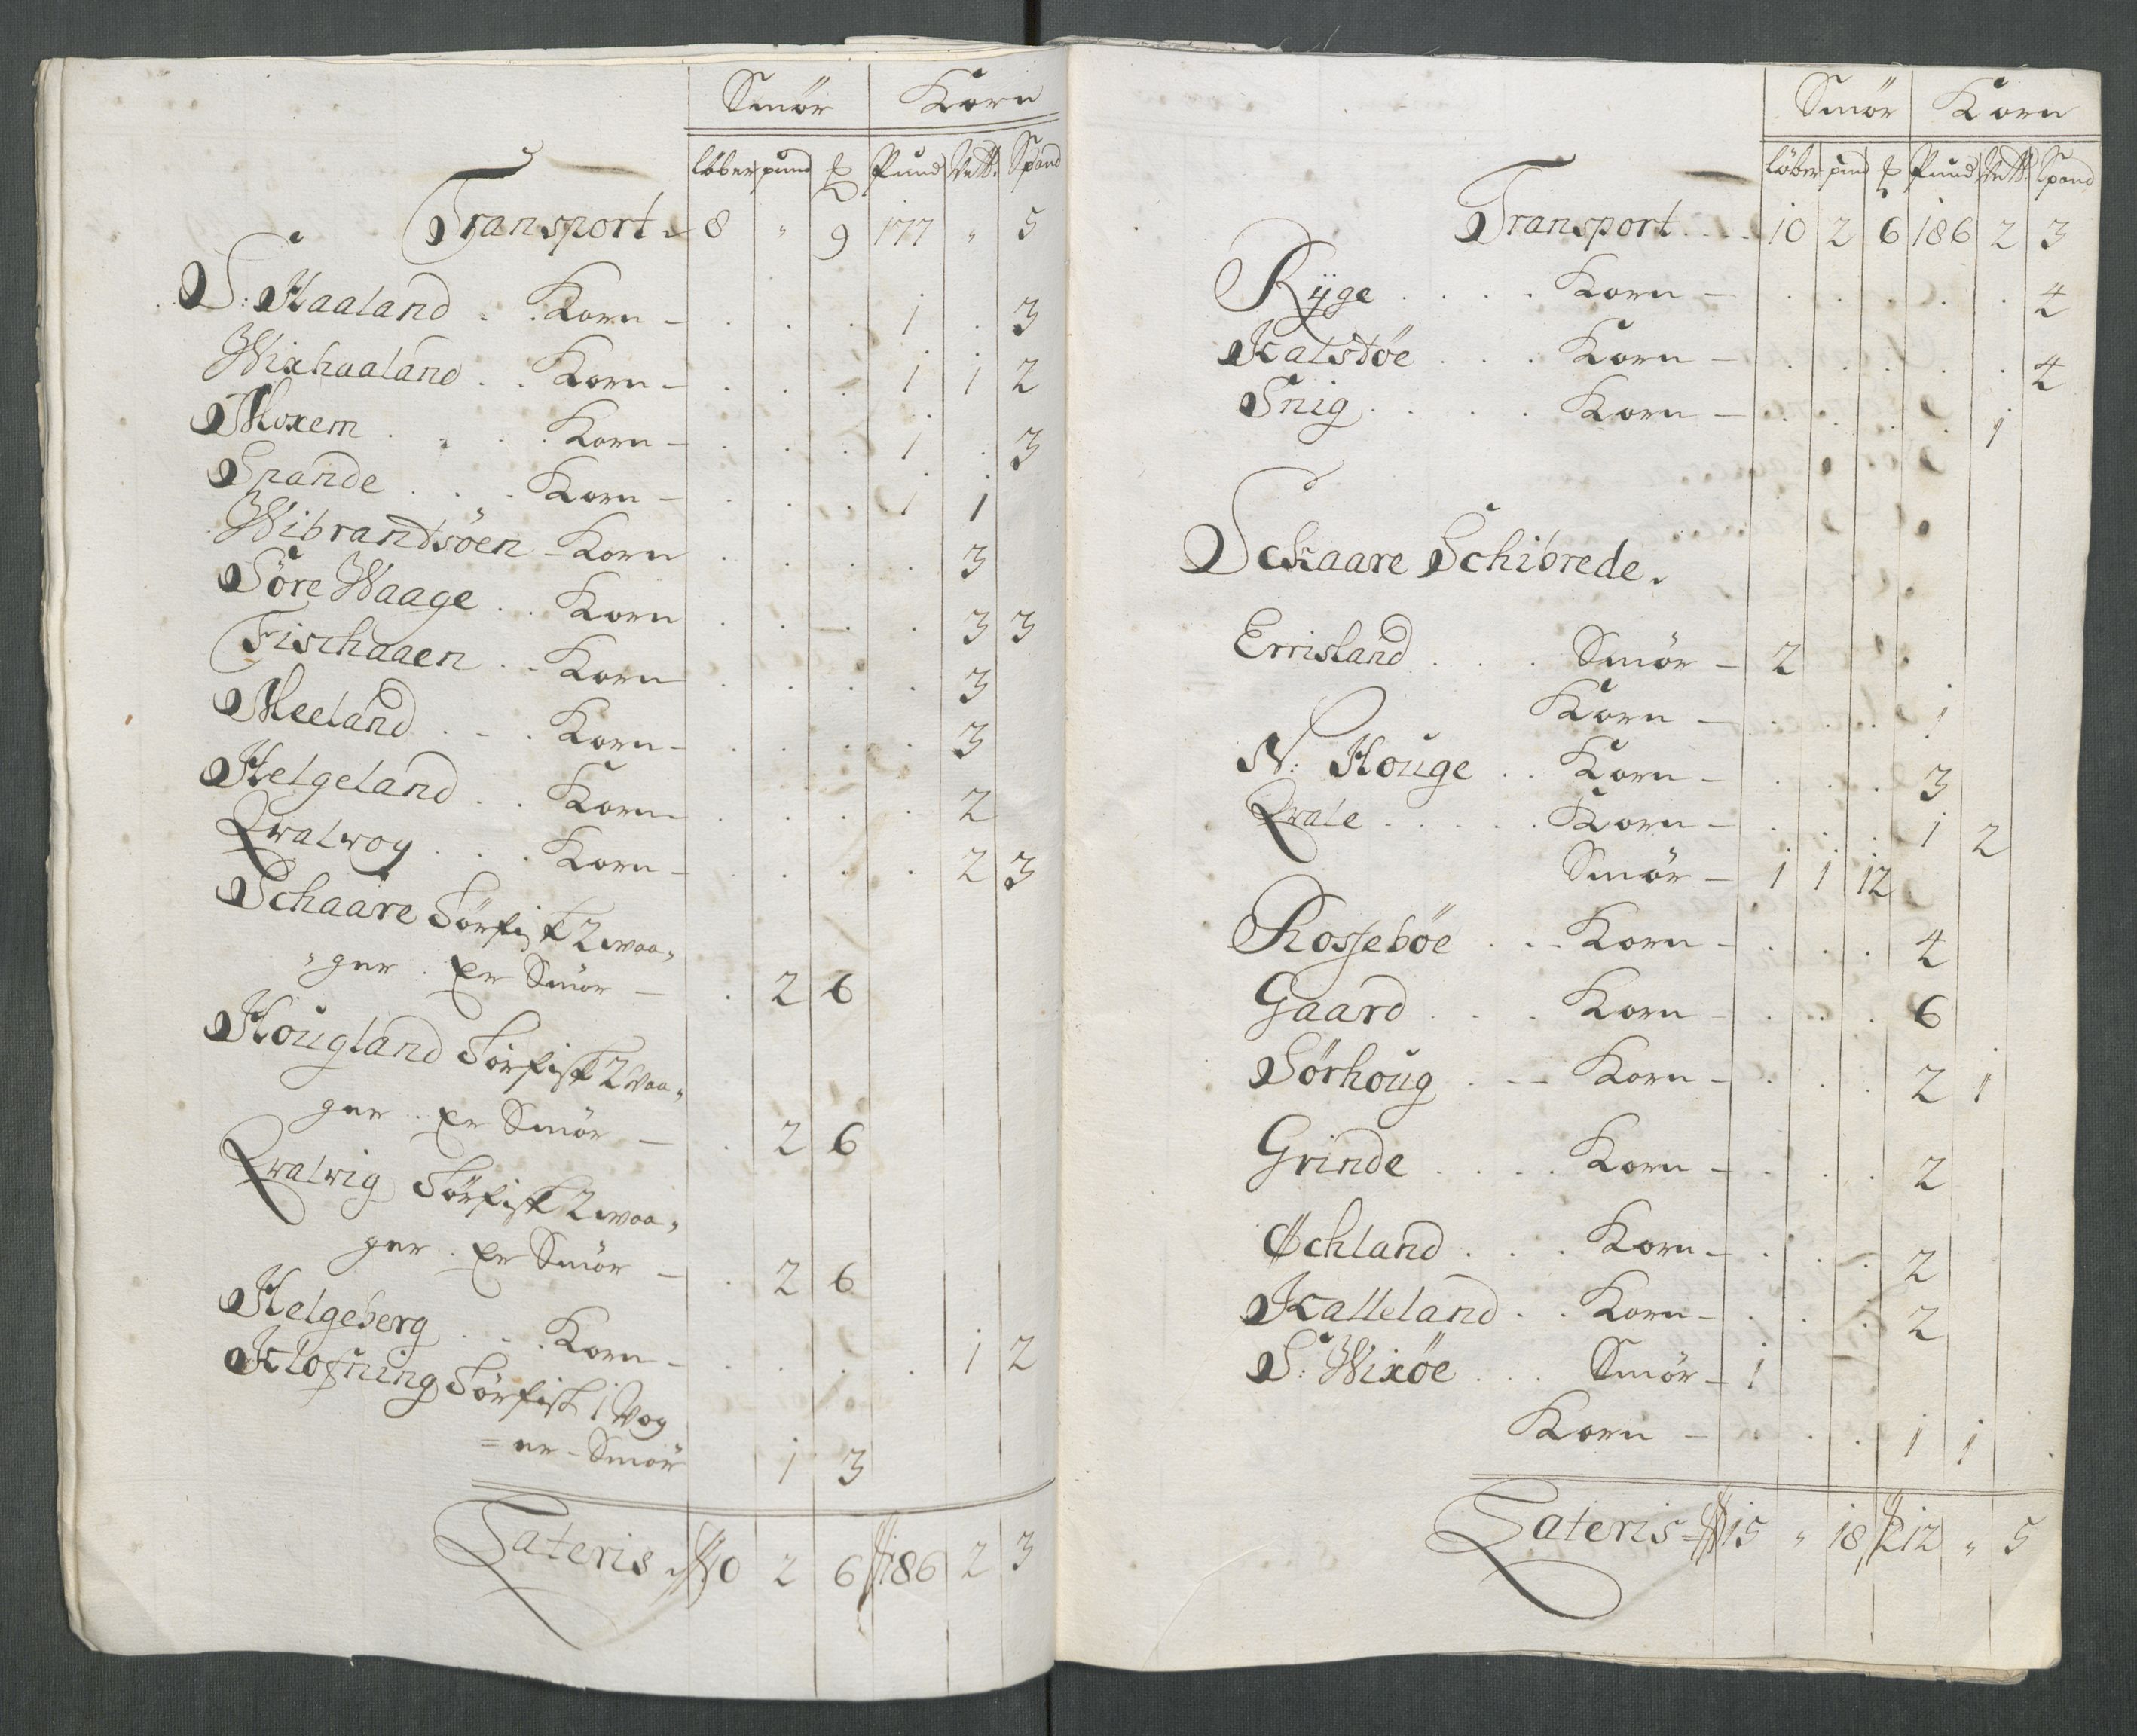 Smör Korn
löber pund ℔ Pund Vett. Spand
Transport 8 " 9 177 " 5
S: Haaland . . Korn - . . . 1 . 3
Wixhaaland . . Korn - . . . 1 1 2
Moxem . . . Korn - . . . 1 . 3
Spande . . . Korn - . . . 1 1
Wibrandsöen - Korn . . . . 3
Söre Waage . . Korn . . . . 3 3
Fischaaen . . Korn . . . . 3
Meeland . . . Korn - . . . . 3
Helgeland . . Korn . . . . 2
Qvalvog . . . Korn - . . . . 2 3
Schaare Törfisk 2 waa„
„ger . Er Smör — . 2 6
Hougland Törfisk 2 Waa„
ger . Er Smör — . 2 6
Qvalvig Törfisk 2 waa„
ger . Er Smör — . 2 6
Helgeberg . . Korn - . . . . 1 2
Klofning Törfisk 1 Vog
= er - Smör 1 3
Lateris 10 2 6 186 2 3
Smör Korn
löber pund ℔ Pund Vett. Spand
Transport . . . . 10 2 6 186 2 3
Rÿge . . . . Korn - . . . . . 4
Kalstöe . . . Korn - . . . . . 4
Snig . . . . Korn - . . . . 1
Schaare Schibrede.
Errisland . . . Smör - 2
Korn - . . . 1
N: Houge . . Korn - . . . 3
Qvale . . . . . Korn - . . . 1 2
Smör - 1 1 12
Rosseböe . . . Korn - . . . 4
Gaard . . . Korn - . . . 6
Sörhoug . - - Korn - . . . 2 1
Grinde . . . . Korn - . . . 2
Øchland . . . Korn - . . . 2
Kalleland . . Korn - . . . 2
S: Wixöe . . . Smör - 1
Korn - . . . 1 1 .
Lateris 15 " 18 212 " 5